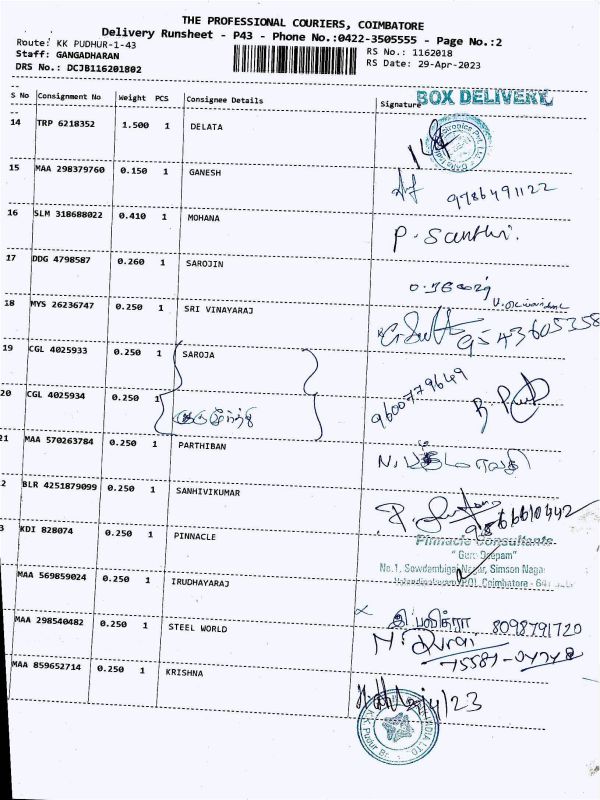 THE PROFESSIONAL COURIERS, COIMBATORE
Delivery Runsheet - P43 - Phone No.:0422-3505555 - Page No.:2
Route: KK PUDHUR-1-43 RS No.: 1162018
Staff: GANGADHARAN RS Date: 29-Apr-2023
DRS No.: DCJB116201802
--
S No Consignment No Weight PCS Consignee Details Signature BOX DELIVERY
--
14 TRP 6218352 1.500 1 DELATA
15 MAA 298379760 0.150 1 GANESH 9786491122
16 SLM 318688022 0.410 1 MOHANA P. Santhi.
17 DDG 4798587 0.260 1 SAROJIN
18 MYS 26236747 0.250 1 SRI VINAYARAJ 9543605358
19 CGL 4025933 0.250 1 SAROJA 9600779649
20 CGL 4025934 0.250 1
21 MAA 570263784 0.250 1 PARTHIBAN
2 BLR 4251879099 0.250 1 SANHIVIKUMAR
3 KDI 828074 0.250 1 PINNACLE Pinnacle Consultants
" Guru Deepam"
No.1, Sowdambigai Nagar, Simson Nagar
Coimbatore - 641
MAA 569859024 0.250 1 IRUDHAYARAJ
இ.பவித்ரா 8098791720
MAA 298540482 0.250 1 STEEL WORLD N. Durai
MAA 859652714 0.250 1 KRISHNA